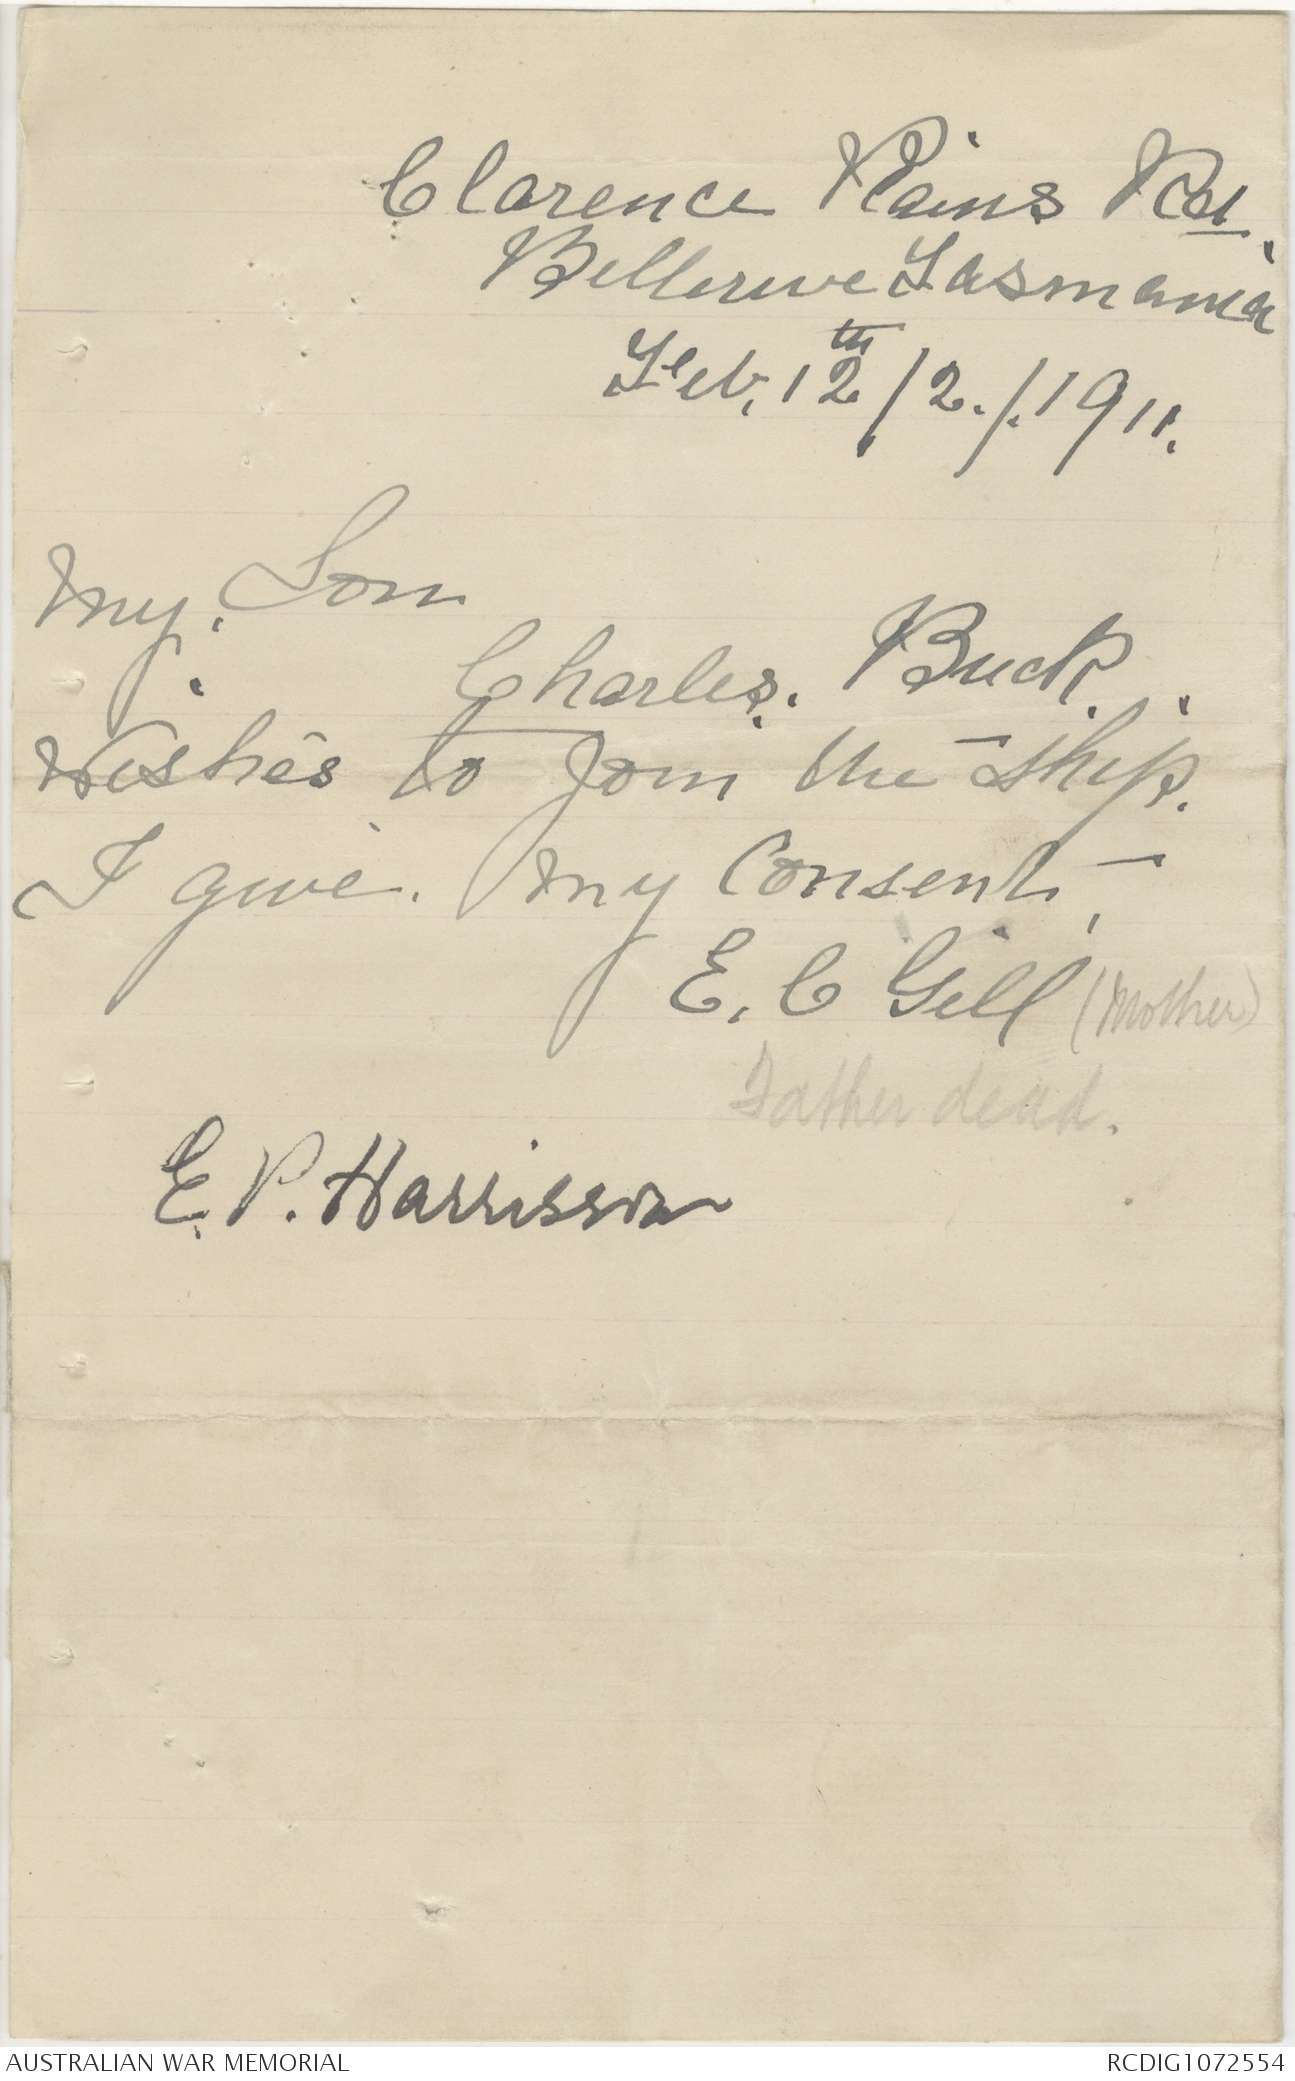 Clarence Plains Rd.
Bellerive Tasmania
Feb, 12th/2./.1911.
My. Son
Charles. Buck.
Wishes to Join the Ship.
I give. my Consent,
E. C Gill (Mother)
Father dead.
E. P. Harrisson
AUSTRALIAN WAR MEMORIAL
RCDIG1072554